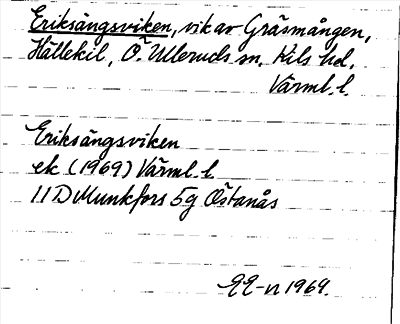 Eriksängsviken, vik av Gräsmången,
Hällekil, Ö. Ulleruds sn. Kils hd.
Värml. l.
Eriksängsviken
ek (1969) Värml. l.
11D Munkfors 5g Östanås
1969.